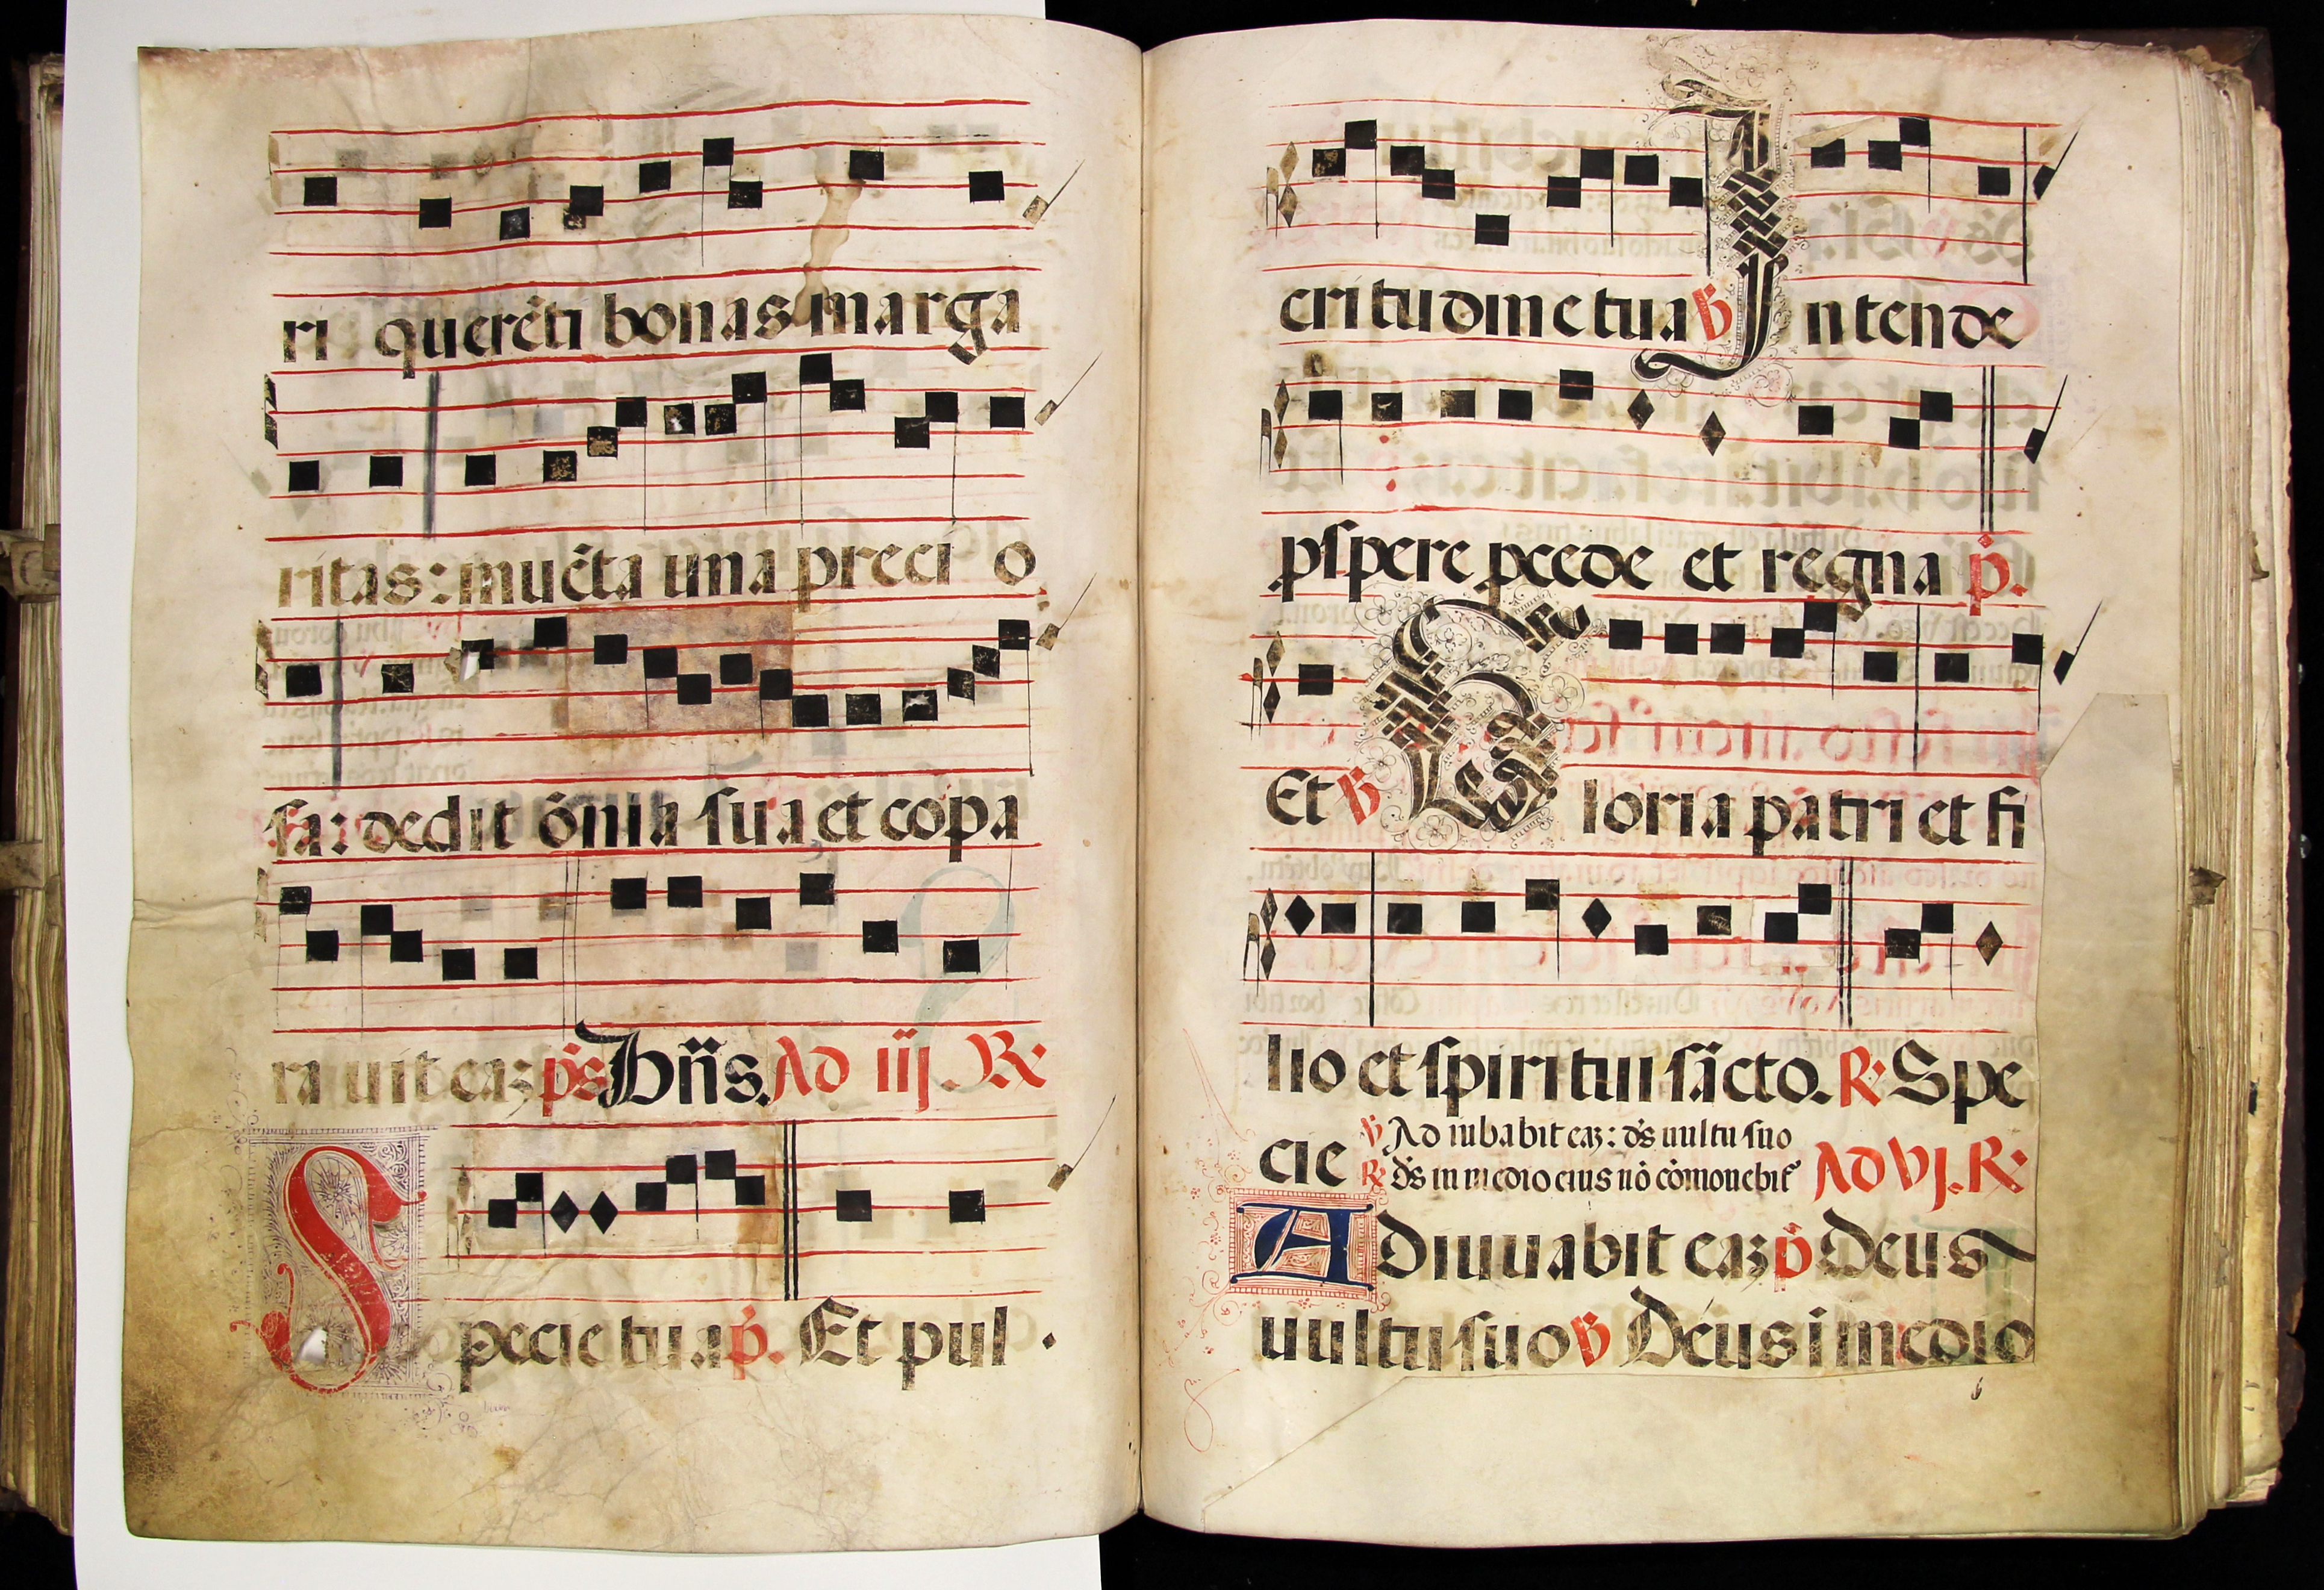 ri querẽti bonas marga
ritas: inuẽta una preci o
sa: dedit õnia sua et cõpa
ra uit eaʒ p̃s Bñs. Ad iij. R:
Specie tua p̃. Et pul
cri tudine tua ℣ Intende
ꝓspere ꝓcede et regna p̃.
Et ℣ Gloria patri et fi
lio et spiritui sãcto. R: Spe
cie ℣ Ad iubabit eaʒ: d̃s uultu suo
R: d̃s in medio eius nõ cõmouebit᷑ Ad vj. R:
Adiuuabit eaʒ p̃ Deus
uultu suo ℣ Deus ĩ medio